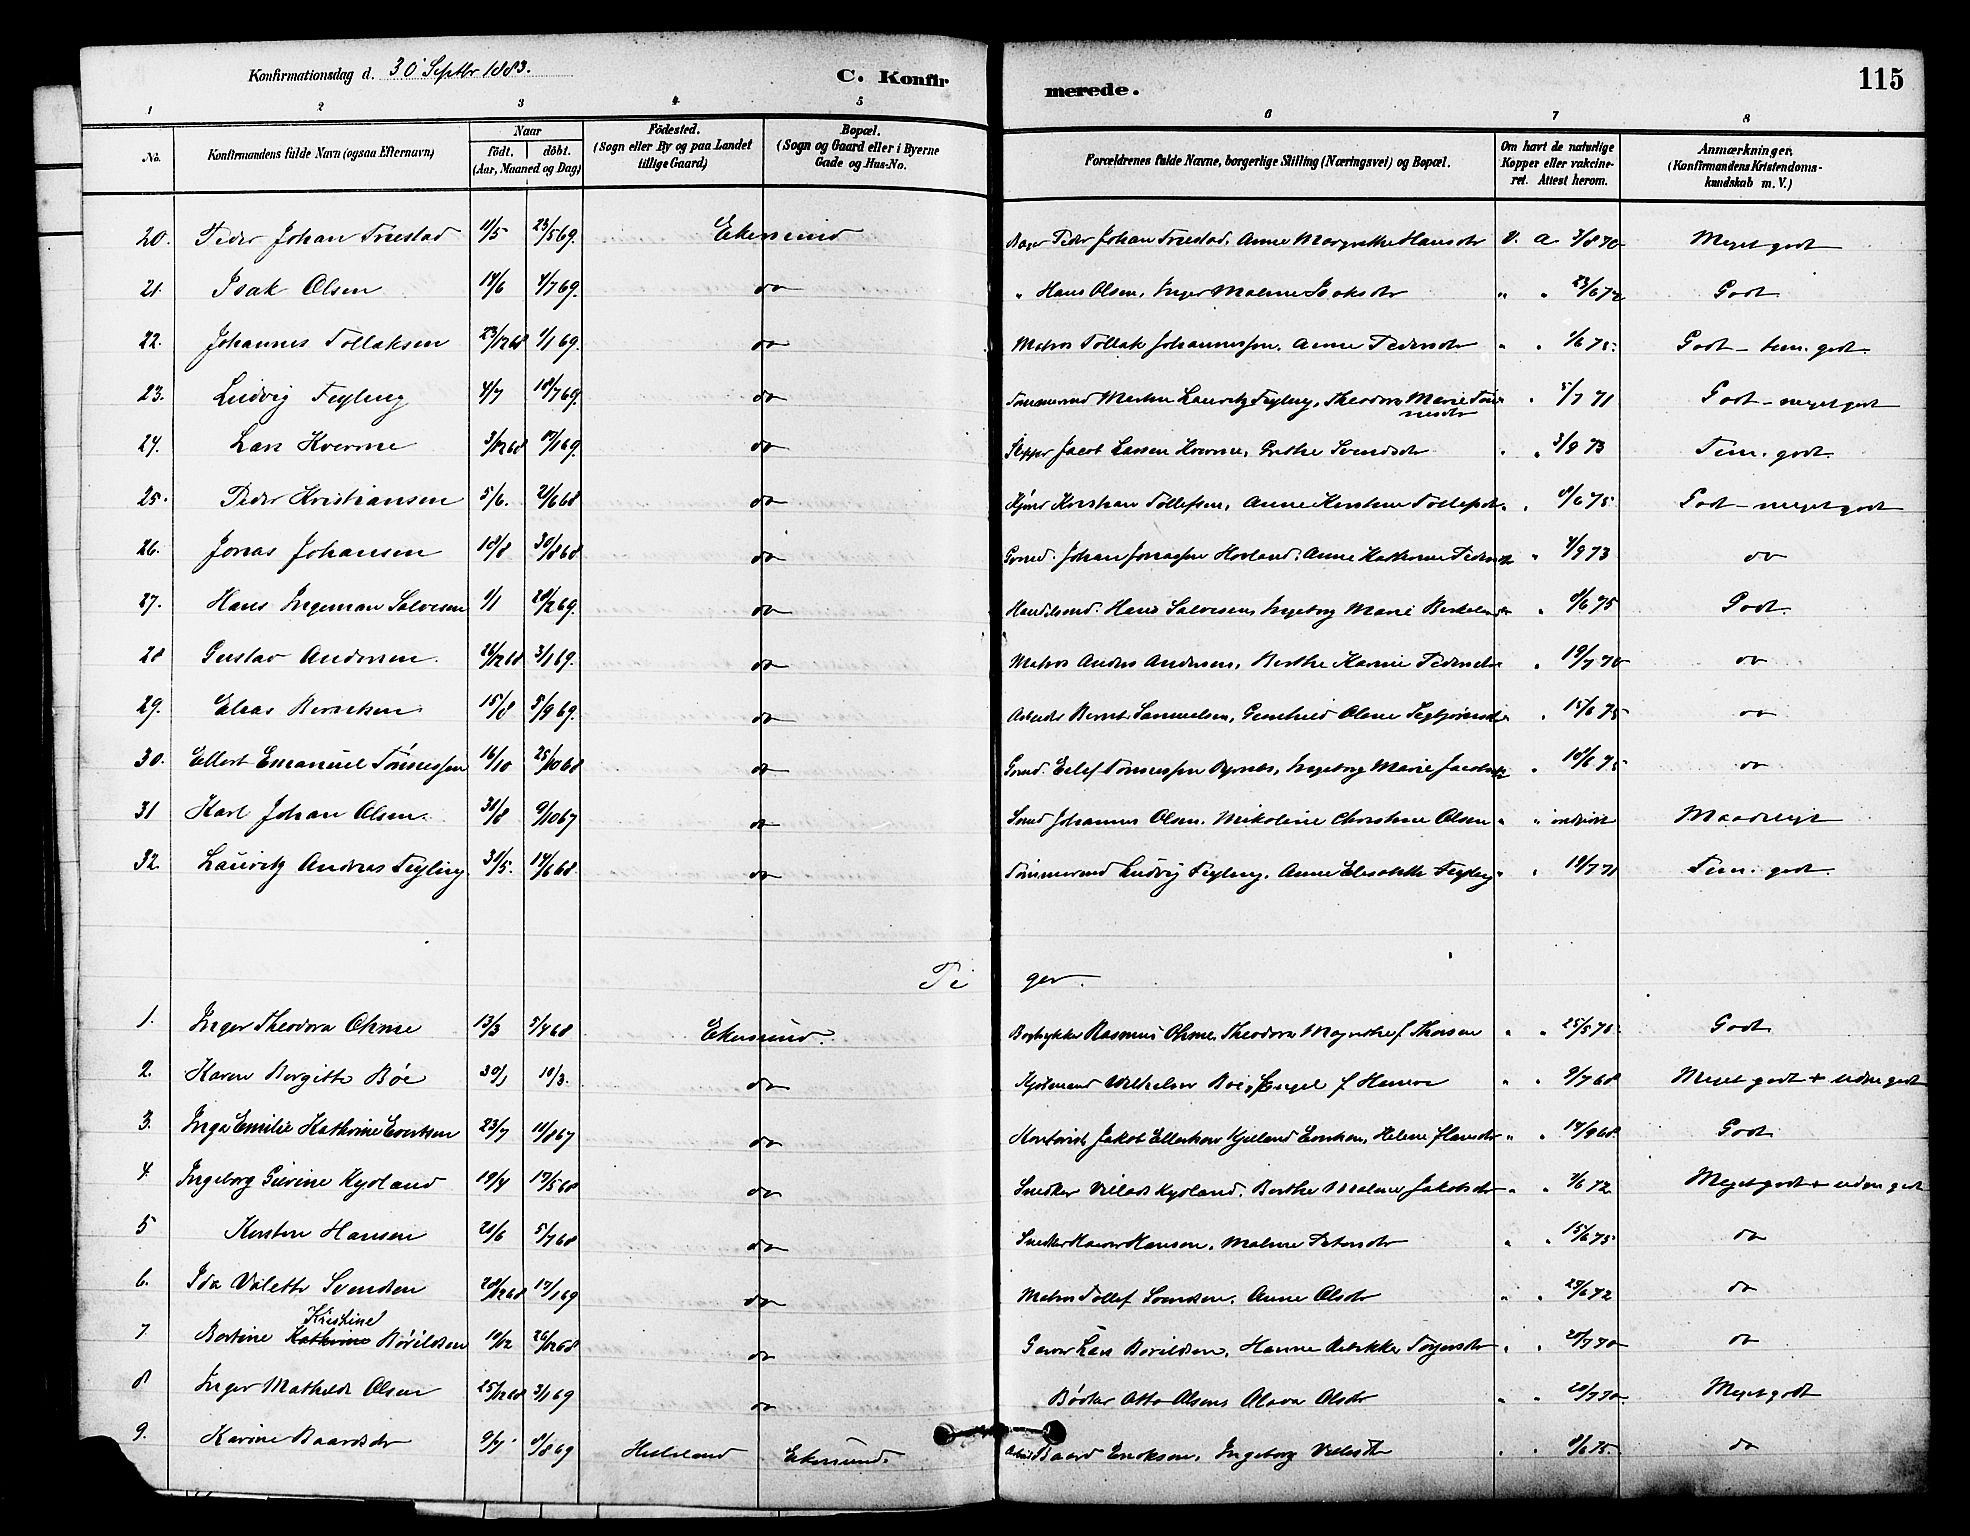 Konfirmationsdag d. 30 Septbr 1883. C. Konfirmerede. 115
1 2 3 4 5 6 7 8
No. Konfirmandens fulde Navn (ogsaa Efternavn) Naar födt, döbt. (Aar, Maaned og Dag) Födested. (Sogn eller By og paa Landet tillige Gaard) Bopæl. (Sogn og Gaard eller i Byerne Gade og Hus-No. Forældrenes fulde Navne, borgerlige Stilling (Næringsvei) og Bopæl. Om havt de naturlige Kopper eller vakcineret. Attest herom. Anmærkninger, (Konfirmandens Kristendomskundskab m. V.)
20. Peder Johan Friestad 11/5 23/5 69. Ekersund Peder Johan Friestad, Anne Margrethe Hansdtr V. a 3/8 70 Meget godt
21. Isak Olsen 14/6 4/7 69. do " Hans Olsen, Inger Malene Isaksdtr " " 23/6 72 Godt
22. Johannes Tollaksen 23/12 68 1/1 69. do Matros Tollak Johannessen, Anne Pedersdtr " " 1/6 75. Godt - tem. godt.
23. Ludvig Feyling 4/7 18/7 69. do Tømmermd Lauritz Feyling, Theodora Marie Tønnesdtr " 5/7 71 Godt - meget godt
24. Lars Kverme 3/12 68 17/1 69. do Jacob Larsen Kverme, Grethe Svendsdtr " " 3/9 73 Tem. godt.
25. Peder Kristiansen 5/6. 21/6 68 do Kristian Tollefsen, Anne Kirstine Tollefsdtr " 8/6 75 Godt - meget godt
26. Jonas Johansen 18/8 30/8 68 do Johan Jonassen Hovland, Anne Kathrine Pedersdtr " 4/9 73 do
27. Hans Ingeman Salvesen 1/1 20/2 69. do Handelsmd. Hans Salvesen, Ingeborg Marie " 8/6 75 Godt.
28 Gustav Andersen. 26/12 68 3/1 69. do Matros Anders Andersen, Berthe Karine Pedersdtr " 19/7 70 do
29. Elias Berntsen 15/8 5/9 69. do Arbeider Bernt Samuelsen, Gunhild Oline " 15/6 75 do
30. Ellert Emanuel Tønnessen 16/10 25/10 68 do Eilef Tønnessen, Ingeborg Marie Jacobsdtr " 18/6 75 do
31 Karl Johan Olsen. 31/8 9/10 67 do Smed Johannes Olsen, Nikoline Christine Olsen " " Maadeligt
32 Lauritz Andreas Feyling 31/5. 14/6 68. do Tømmermd Ludvig Feyling, Anne Elisabeth Feyling " " 19/7 71 Tem. godt.
Piger.
1. Inger Theodora Ohme 13/3 5/4 68 Ekersund. Bogtrykker Rasmus Ohme, Theodora Magrethe f. Thorsen " " 25/5 70. Godt
2. Karen Bergitte Böe 30/1 10/3. do Kjøbmand Wilhelm Böe, Engel f. " " 9/7 68 Meget godt + udm. godt
3. Inga Emilie Kathrine Evertsen 23/7 11/8 67 do Jakob Kjeland Evertsen, Helene Hansdtr " " 14/9 68. Godt
4 Ingeborg Gurine Kydland 19/4 17/5 68 do Snedker Villads Kydland, Berthe Malene Jakobsdtr " " 3/6 72 Meget godt + udm godt
5 Kirstine Hansen 21/6 5/7 68 do Snedker Hansen, Malene Petersdtr " " 15/6 75 do
6. Ida Valette Svendsen 28/12 68 17/1 69 do Matros Tollef Svendsen, Anne Olsdtr " " 29/6 72 do
7 Bertine Kathrine Kristine Börildsen 10/12 26/12 68 do Garver Lars Börildsen, Hanne Rebekke Torgersdtr " " 20/7 70 do
8 Inger Mathilde Olsen 25/12 68 3/1 69 do Bödker Otto Olsen, Olava Olsdtr " " 20/7 70 Meget godt
9. Karine Baardsdtr 9/7 8/8 69 Helleland Ekersund. Baard Eriksen, Ingeborg Villadsdtr " " 8/6 75. do